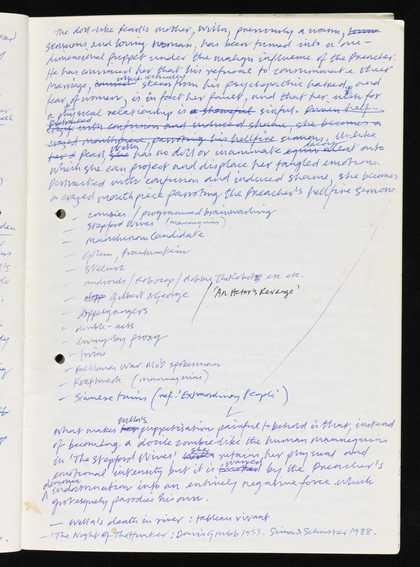 The doll-like Pearl's mother, Willa, previously a warm,
sensuous, and loving woman, has been turned into a one-
dimensional puppet under the malign influence of the Preacher.
He has convinced her that his refusal to consummate their
marriage, which actually stems from his psychopathic hatred and
fear of women, is in fact her fault, and that her desire for
a physical relationship is sinful.
Unlike
Pearl, Willa has no doll or inanimate onto
which she can project and displace her tangled emotions.
Distracted with confusion and induced shame, she becomes
a crazed mouthpiece parroting the Preacher's hellfire sermons.
- zombies / programmed brainwashing
- Stepford Wives (mannequins)
- Manchurian Candidate
- Golem, Frankenstein
- Stelarc
- androids / Robocop / Robby the Robot etc. etc.
- Gilbert & George 'An Actor's Revenge'
- doppelgangers
- double-acts
- living by proxy
- twins
- Falklands War MoD spokesman
- Kraftwerk (mannequins)
- Siamese twins (ref: 'Extraordinary People')
What makes Willa's puppetisation painful to behold is that, instead
of becoming a docile zombie like the human mannequins
in 'The Stepford Wives' she retains her physical and
emotional intensity but it is warped by the Preacher's
demonic indoctrination into an entirely negative force which
grotesquely parodies his own.
- Willa's death in river: tableau vivant
- 'The Night of the Hunter': Davis Grubb 1953. Simon & Schuster 1988.